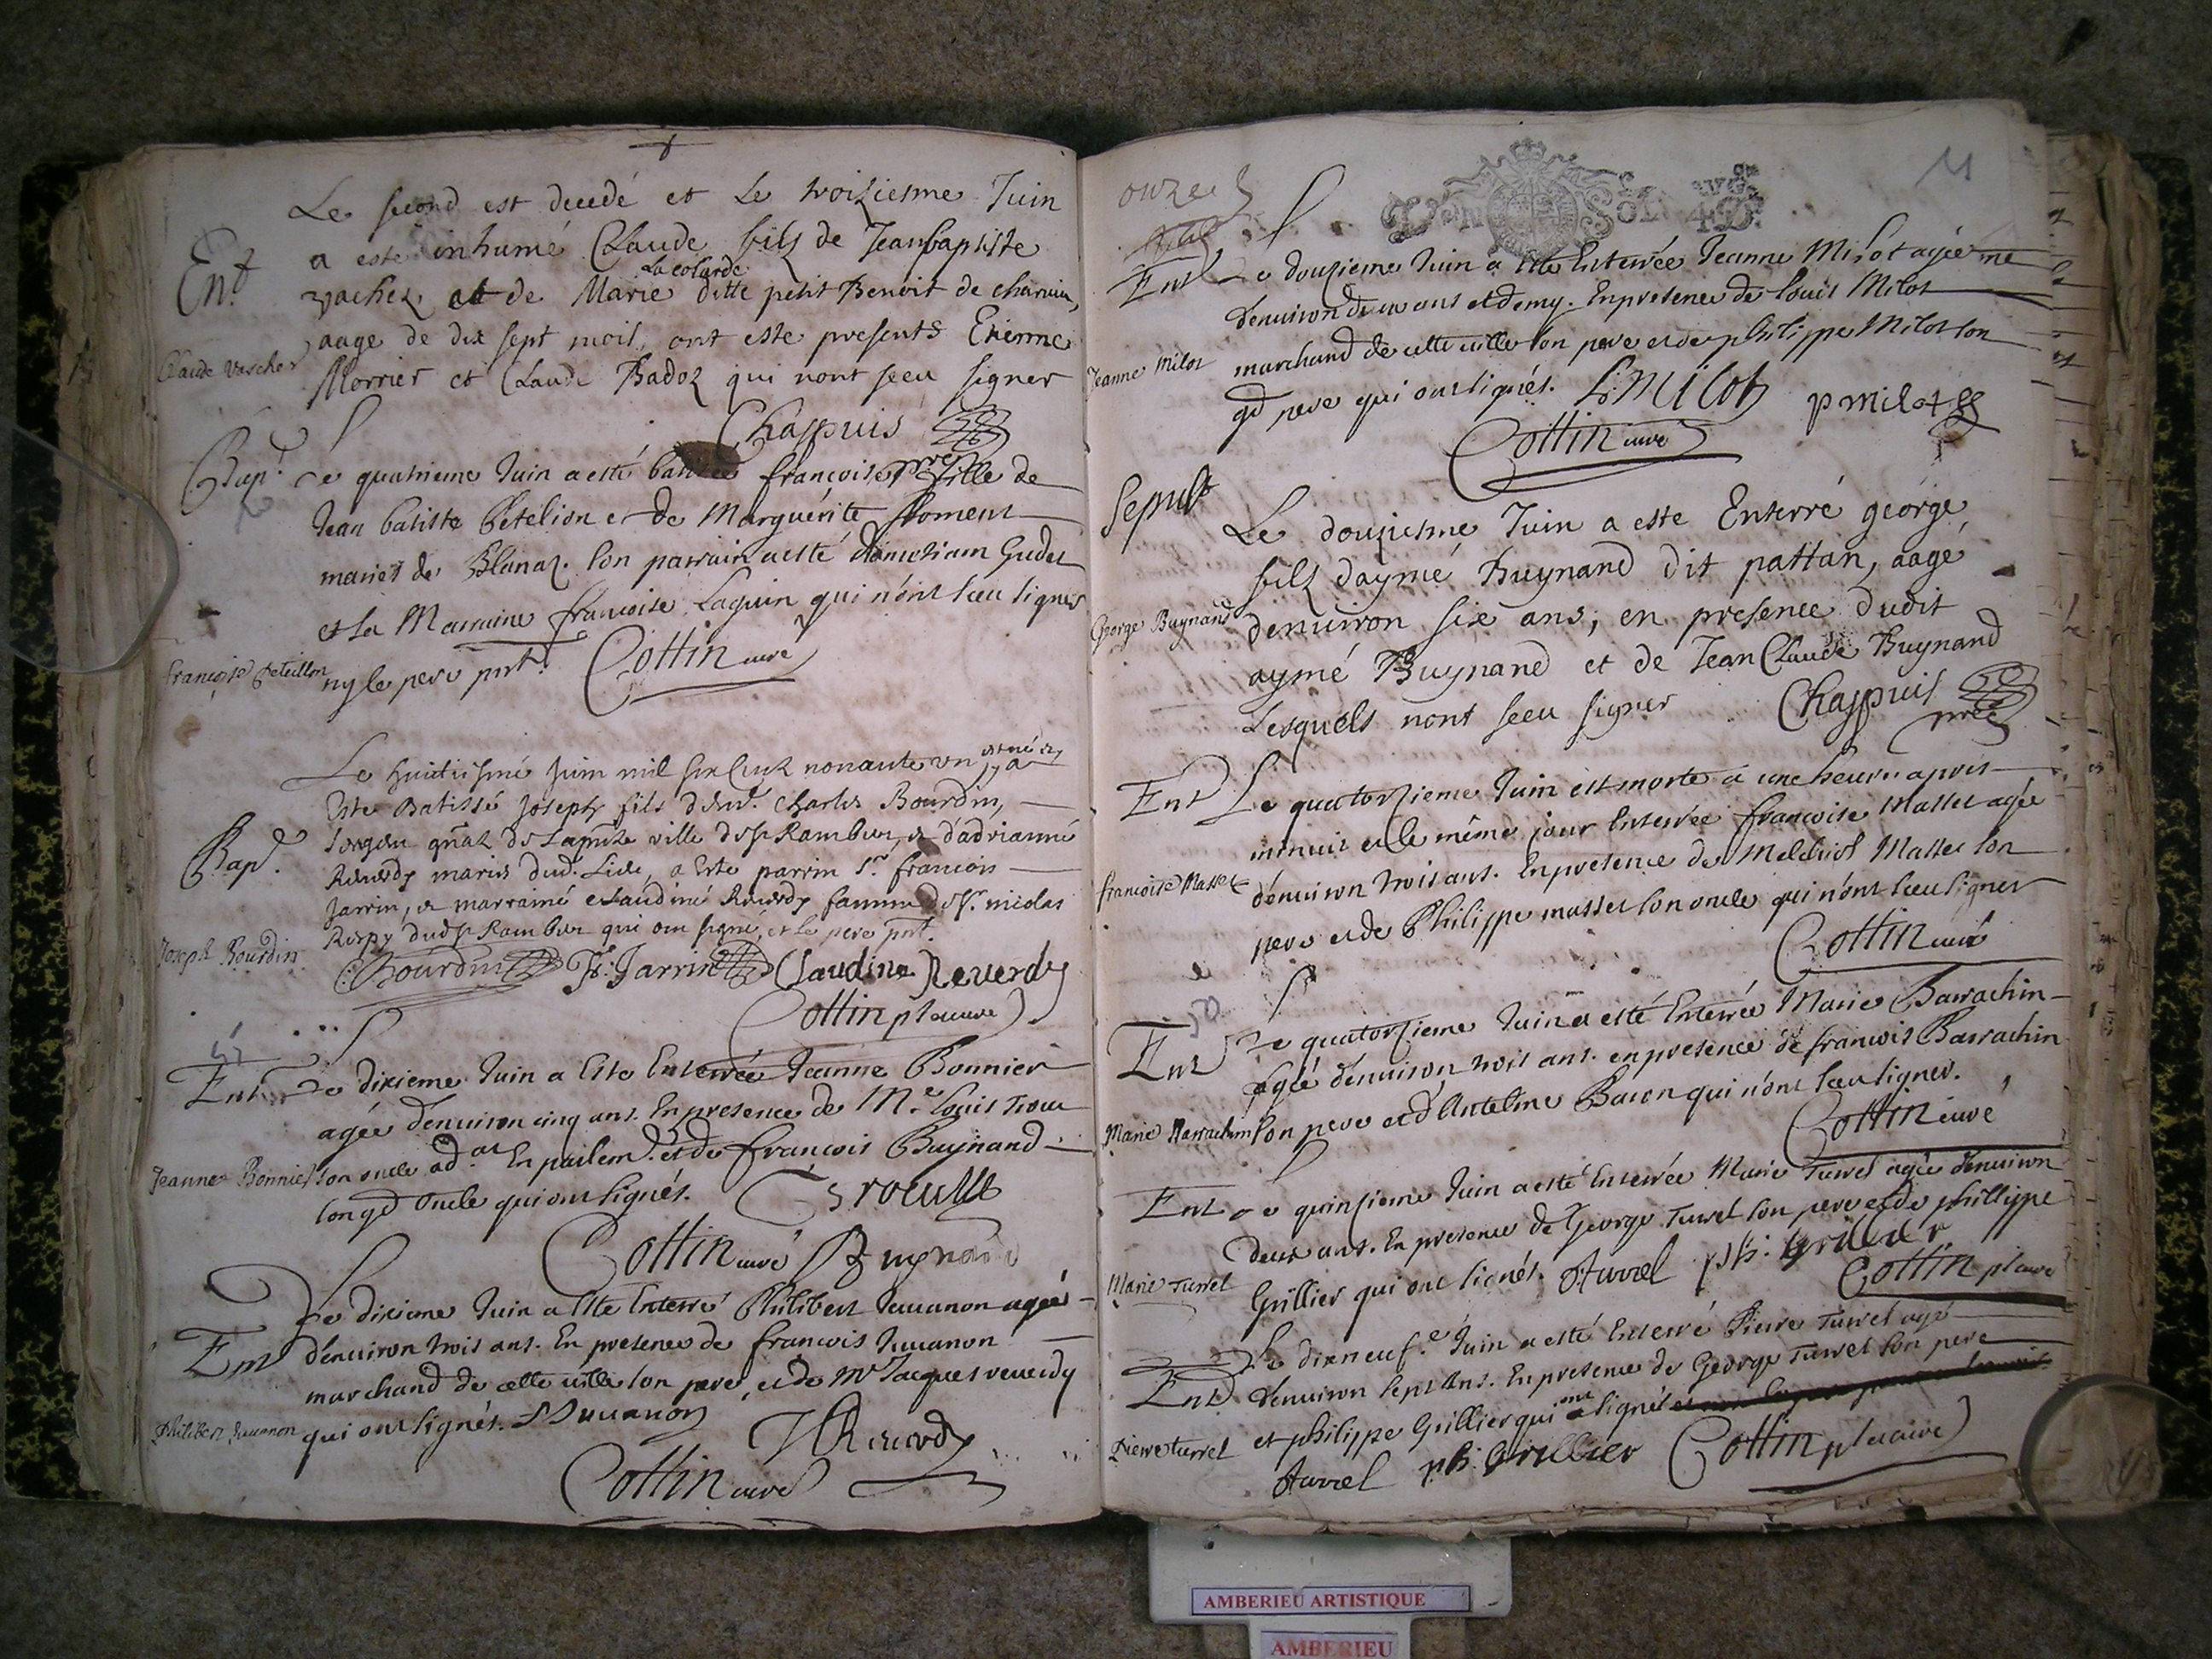 Le second est decedé et Le troiziesme Juin
Ent
a este inhumé Claude fils de Jeanbaptiste
La colarde
vachez et de Marie ditte petit Benoit de
aage de dix sept mois, ont este presents Etienne
Claude Vascher
Morrier et Claude Badoz qui nont sceu signer
Chappuis
pre
Bap.
Le quatrieme Juin a esté françoise fille de
Jean batiste betelion et de Marguérite froment
mariés de Blanaz. Son parrain a esté Gudet
et sa Marraine francoise Laguin qui n'ont sceu signer
françoise beteillon
ny le pere pnt. Cottin curé
Le huictiesme Juin mil six cent nonante un
Este Batissé Joseph fils de Charles Bourdin,
Bap.
ville de St Rambert, et d'adrianne
Reverdy mariés dud. Lieu, a Este parrin Sr. francois
Jarrin, et marrainé claudine Reverdy famme de Sr. nicolas
Joseph Bourdin
dud St Rambert qui ont signé, et le pere pnt.
Bourdin F. Jarrin Claudine Reverdy
Cottin pt curé
Ent
Le dixieme Juin a esté Enterrée Jeanne Bonnier
agée denuiron cinq ans. En presence de Me Louis Trou
Jeanne Bonnier
son oncle ad.at En parlemt. et de françois Buynand
son gd oncle qui ont signés.
Cottin curé Buynand
Le dixieme Juin a esté Enterré Philibert Juuanon agée
Ent
d'enuiron trois ans. En presence de francois Juuanon
marchand de cette ville son pere, et de Mr Jacques reuerdy
Philibert Juuanon
qui ont signés. Juuanon
JReuerdy
Cottin curé
onze
11
Ent
Le douzieme Juin a esté Enterrée Jeanne Milot agée
denuiron deux ans et demy. En presence de Louis Milot
Jeanne Milot
marchand de cette ville son pere et de philippe Milot son
gd pere qui ont signés. L. Milot p milot
Cottin curé
Sepult
Le douziesme Juin a este Enterré george
fils daymé Buynand dit pattan, aagé
George Buynand
denuiron six ans, en presence dudit
aymé Buynand et de Jean Claude Buynand
Lesquels nont sceu signer Chappuis
pre
Ent
Le quatorzieme Juin est morte a une heure apres
minuit et le même jour Enterrée francoise Masset agée
francoise Masset
d'enuiron trois ans. En presence de Melchiol Masset son
pere et de Philippe masset son oncle qui n'ont sceu signer
Cottin curé
Ent
Le quatorzieme Juin a esté Enterrée Marie Barrachin
agée denuiron trois ans. en presence de francois Barrachin
Marie Barrachin
son pere et d'Antelme Baron qui n'ont sceu signer.
Cottin curé
Ent
Le quinzieme Juin a esté Enterrée Marie Turrel agée denuiron
deux ans. En presence de George Turrel son pere et de phillippe
Marie Turrel
Grillier qui ont signés. Aturrel ph: Grillier
Cottin pt curé
Le dixneuf.e Juin a esté Enterré Pierre Turrel agé
Ent
denuiron sept ans. En presence de George Turrel son pere
et philippe Grillier qui ont signés
Pierre turrel
Aturrel ph: Grillier Cottin pt curé
AMBERIEU ARTISTIQUE
AMBERIEU